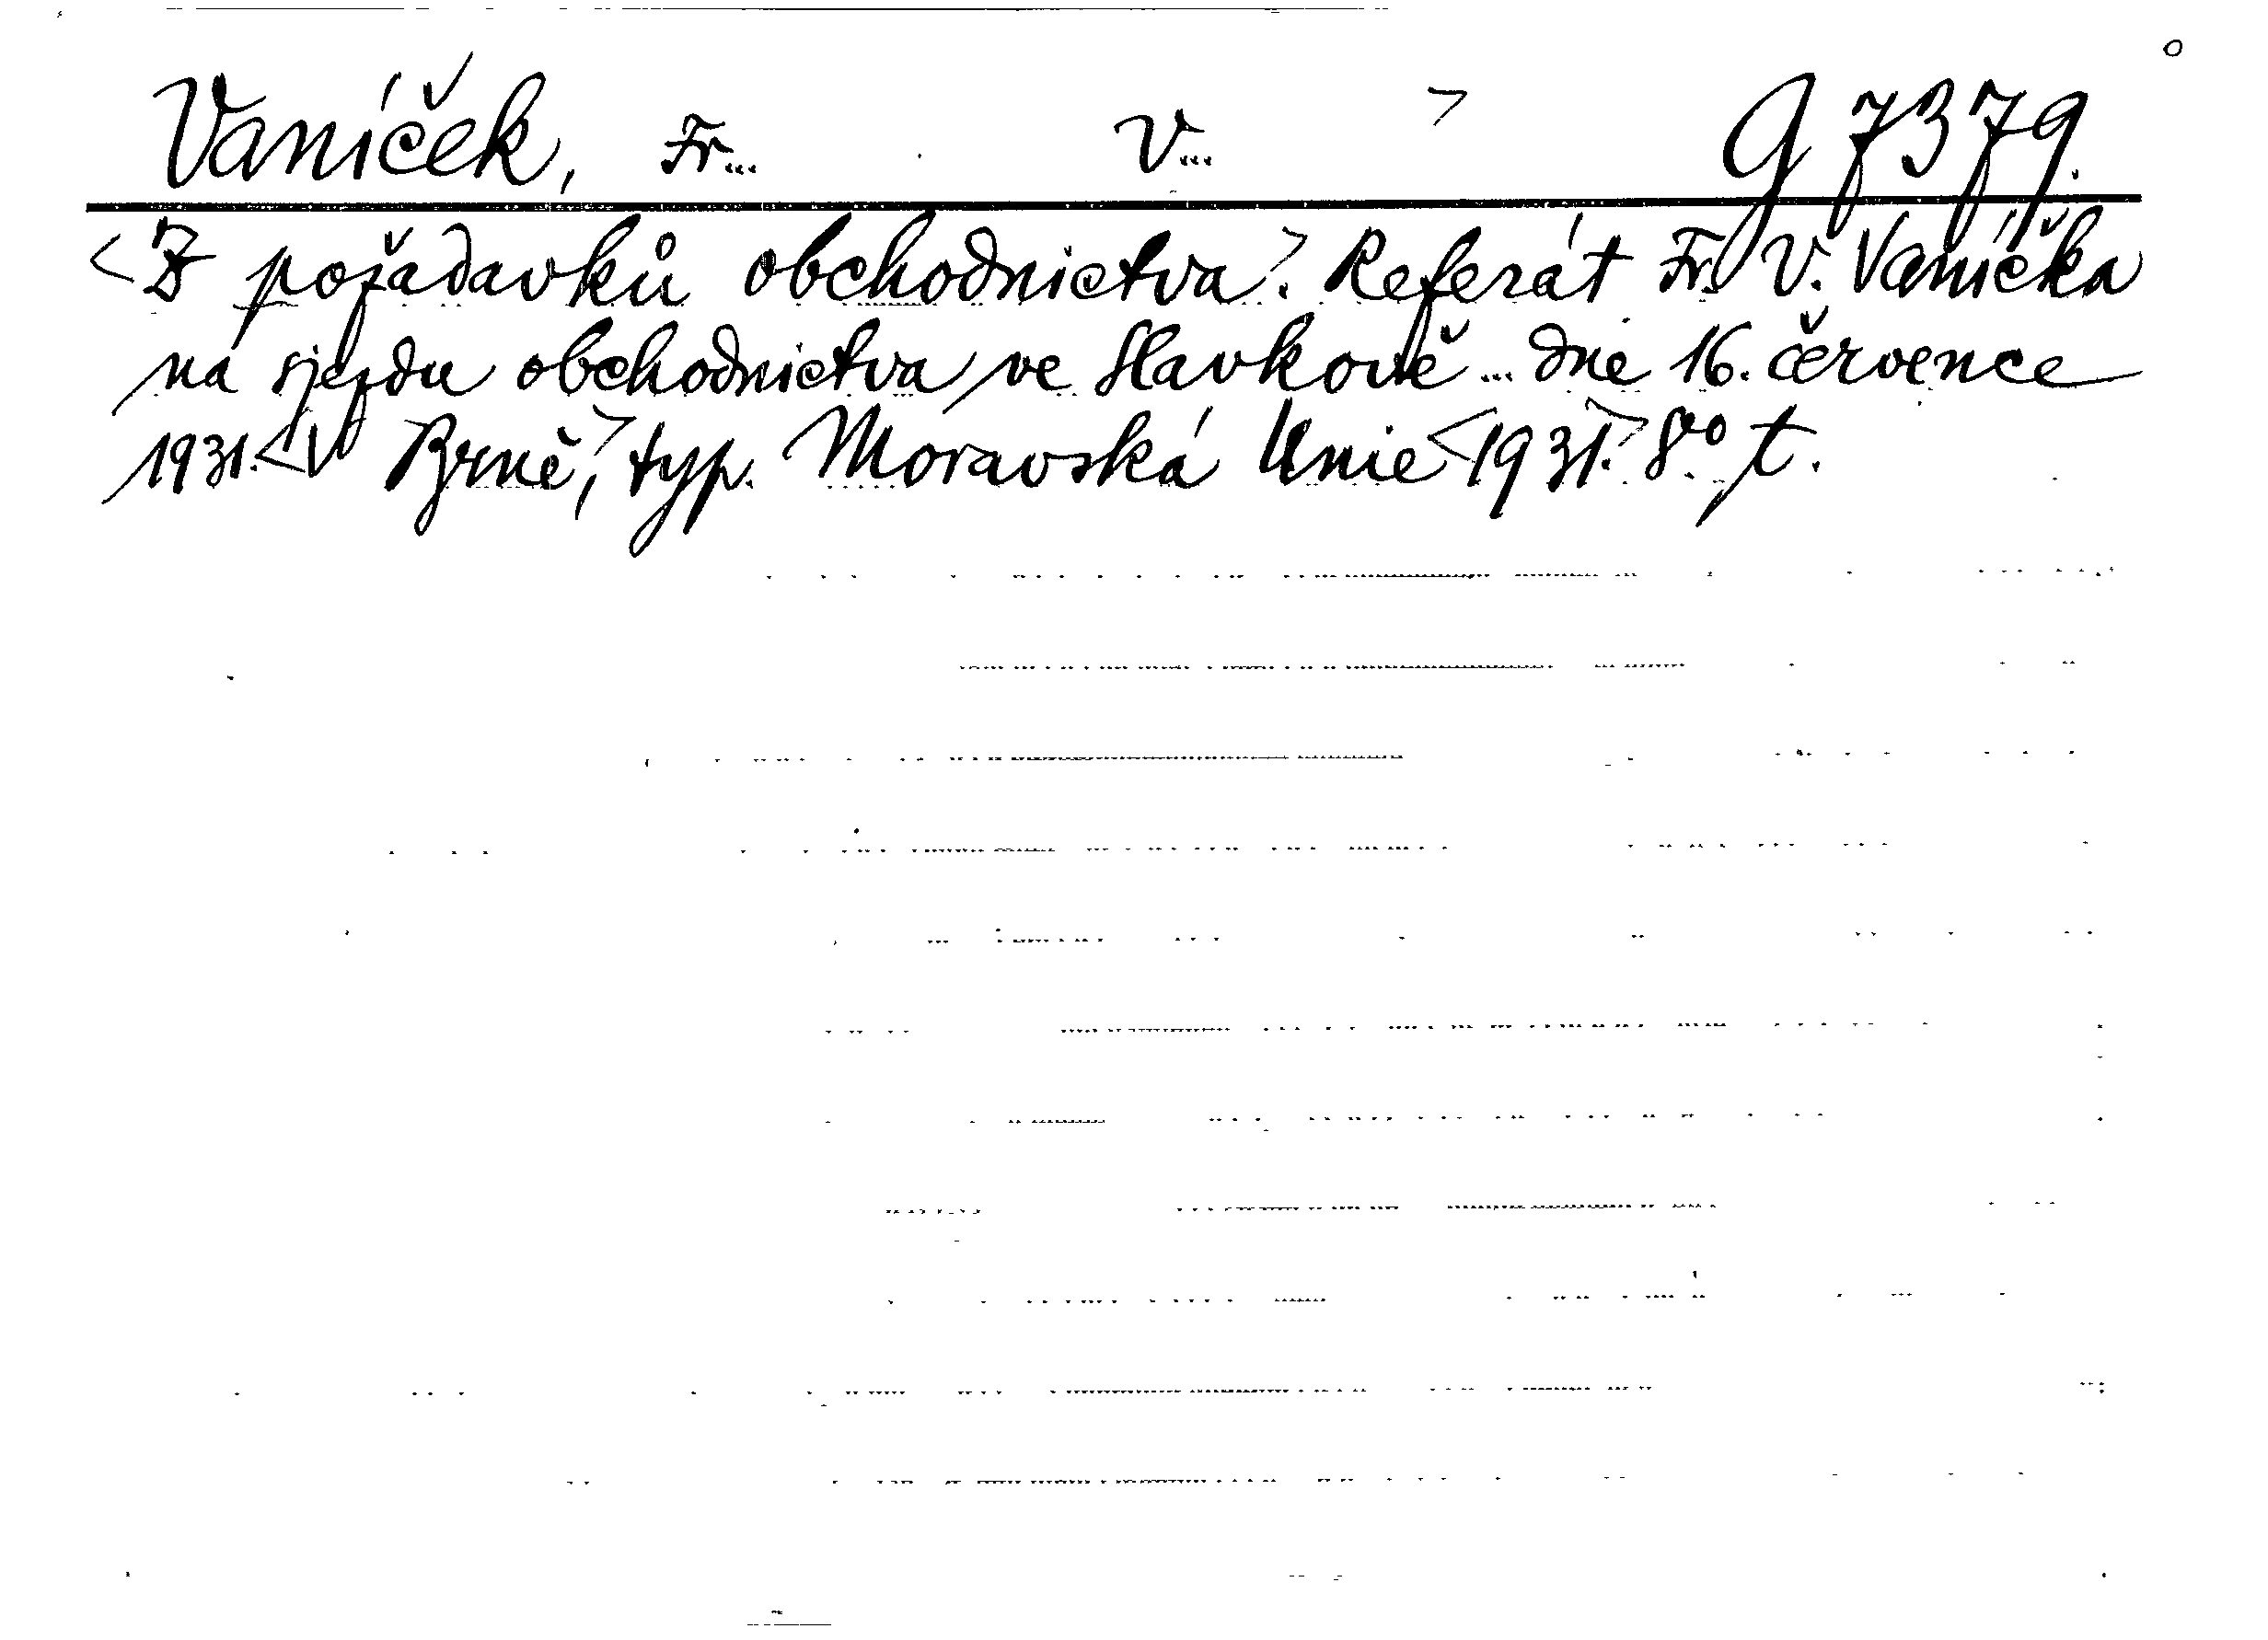 Vaníček, Fr... V... > G 7379.
<Z požadavků obchodnictva>. Referát Fr. V. Vaníčka
na sjezdu obchodnictva ve Slavkově ... dne 16. července
1931. <V Brně,> typ. Moravská Unie <1931.> 8vo t.